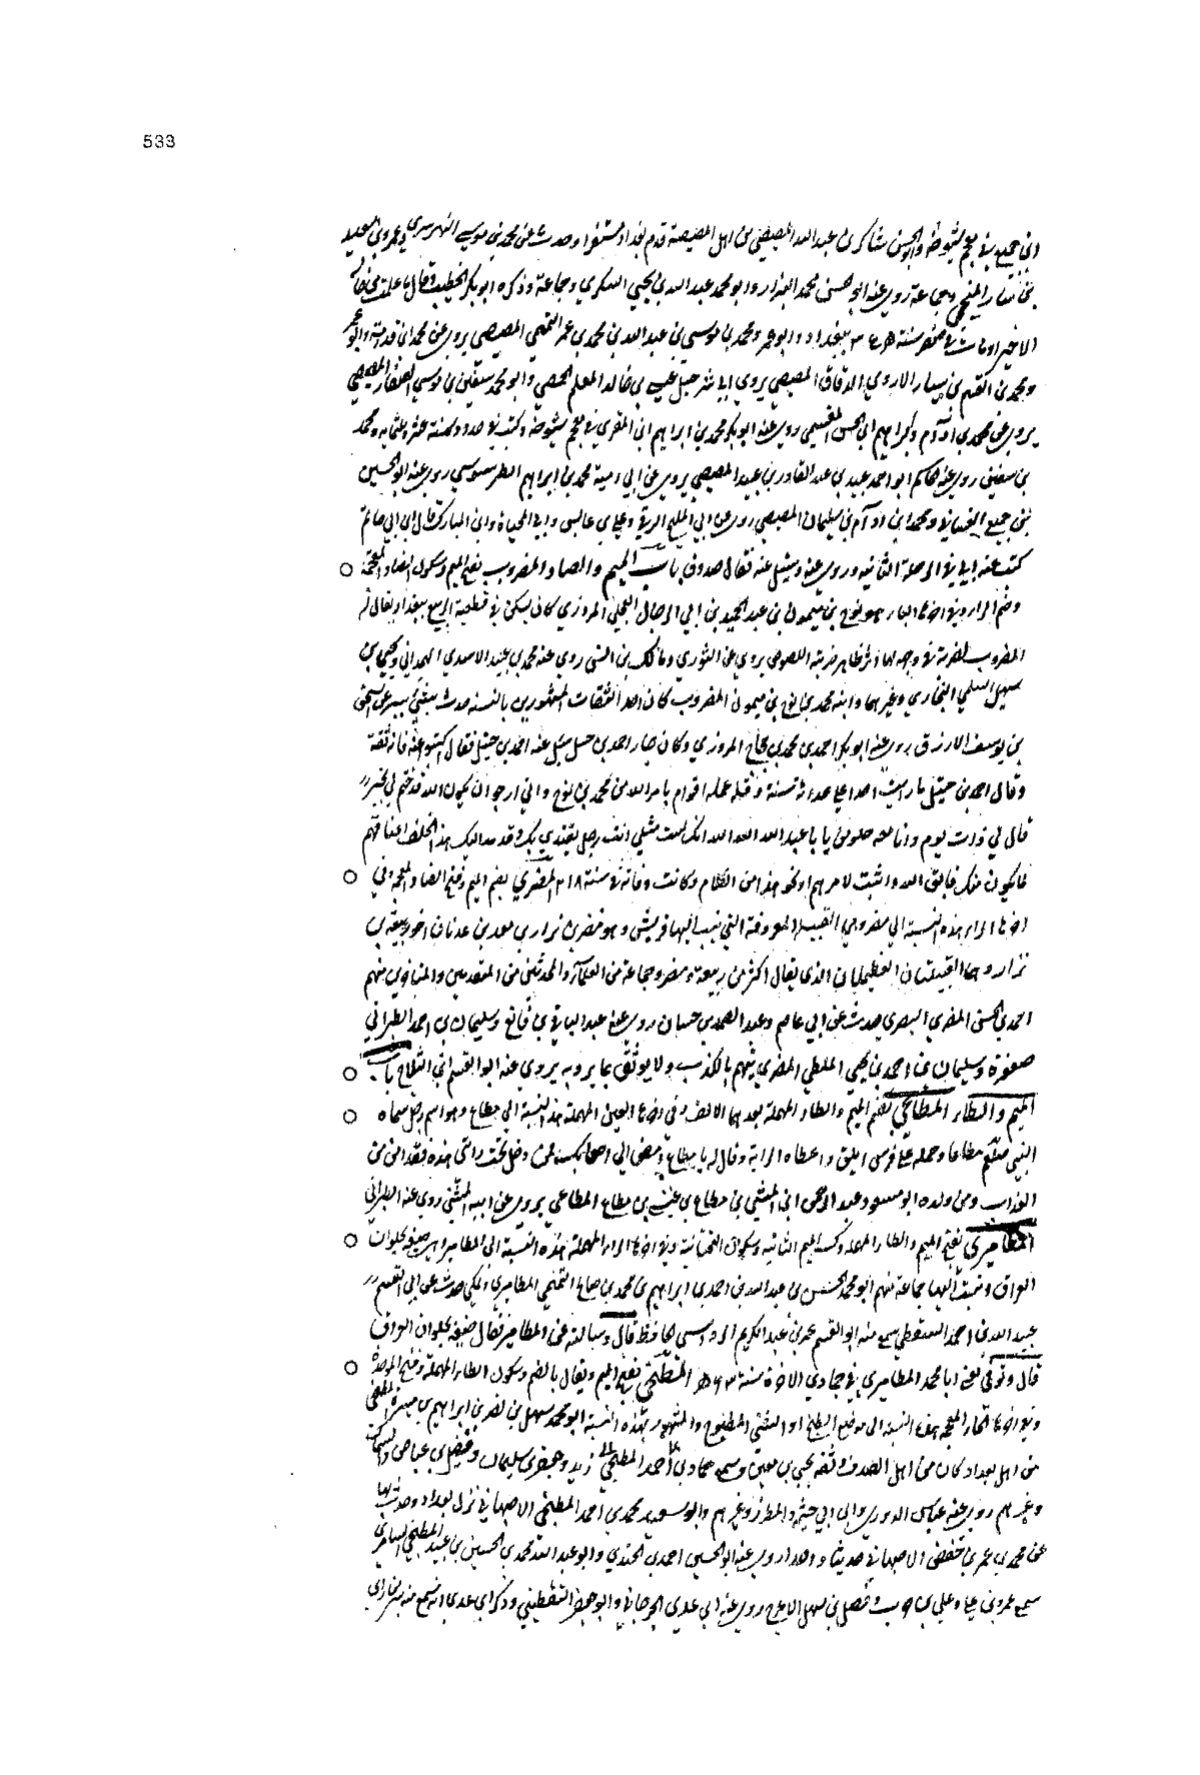 533
ابن جميع في معجم شيوخه وابو الحسن شاكر بن عبد الله المصيصي من اهل المصيصة قدم بغداد وحدث عن محمد بن موسى النهرسري وعمرو بن سعيد
بن سنان المنبجي وجماعة روى عنه ابو الحسن محمد البزار وابو محمد عبد الله بن يحيى السكري وجماعة وذكره ابو بكر الخطيب وقال ما علمت من حاله
الا خيرا ومات في صفر سنة ببغداد وابو عمر ومحمد بن موسى بن عبد الله بن محمد بن عمر المصيصي يروي عن محمد بن قدامة وابو عمر
ومحمد بن القسم بن سيار الازدي الدقاق المصيصي يروي ابي شرحبيل عيسى بن خالد المعلم الحمصي وابو محمد سفين بن موسى الصفار المصيصي
يروي عن محمد بن آدم وابراهيم ابي الحسن المقسمي روى عنه ابو بكر محمد بن ابراهيم ابن المقري في معجم شيوخه وكتب في حدود سنة عشر وثلثمايه ومحمد
بن سفين روى عنه الحاكم ابو احمد عبيد بن عبد القادر بن عبيد المصيصي يروي عن ابي امية محمد بن ابراهيم الطرسوسي روى عنه ابو الحسين
بن جميع الغساني ومحمد ابن آدم بن سليمان المصيصي روى عن ابي المليح الرقي وعلي بن عابس وابي المحياة وابن المبارك قال ابن ابي حاتم
كتب عنه ابي في الرحلة الثانيه وروى عنه وسئل عنه فقال صدوق باب الميم والضاد المضروب بفتح الميم وسكون الضاد المعجمة
وضم الراء وفي اخرها الباء هو نوح بن ميمون بن عبد الحميد بن ابي الرجال العجلي المروزي كان يسكن في قطيعة الربيع ببغداد ويقال له
المضروب لضربة في وجهه ضربه اللصوص يروي عن الثوري ومالك بن انس روى عنه محمد بن عبيد الاسدي الهمداني ويحيى بن
سهيل السلمي البخاري وغيرهما وابنه محمد بن نوح بن ميمون المضروب كان احد الثقات المشهورين بالسنة حدث بشي يسير عن اسحق
بن يوسف الازرق روى عنه ابو بكر احمد بن محمد بن حجاج المروزي وكان جار احمد بن حنبل سئل عنه احمد بن حنبل فقال اكتبوا عنه فانه ثقة
وقال احمد بن حنبل ما رايت احدا على حداثة سنه وقلة علمه اقوم بامر الله من محمد بن نوح واني ارجو ان يكون الله قد ختم له بخير
قال لي ذات يوم وانا معه خلوين يا با عبد الله الله الله انك لست مثلي انت رجل يقتدي بك وقد مد اليك هذا الخلق اعناقهم
لما يكون منك فاتق الله واثبت لامر الله او نحو هذا من الكلام وكانت وفاته في سنة ٢١٨ المضري بضم الميم وفتح الضاد المعجمة وفي
اخرها الراء هذه النسبة الى مضر وهي القبيلة المعروفة التي ينسب اليها قريش وهو مضر بن نزار بن معد بن عدنان اخو ربيعة بن
نزار وهما القبيلتان العظيمتان الذي يقال اكثر من ربيعة ومضر وجماعة من العلماء والمحدثين من المتقدمين والمتاخرين منهم
احمد بن الحسن المضري البصري حدث عن ابي عاصم وعبد الصمد بن حسان روى عنه عبد الباقي بن قانع وسليمان بن احمد الطبراني
وسليمان بن احمد بن يحيى الملطي المضري يتهم بالكذب ولا يوثق بما يرويه يروي عنه ابو القسم ابن الثلاج باب
الميم والطاء المطاعي بضم الميم والطاء المهملة بعدهما الالف وفي اخرها العين المهملة هذه النسبة الى مطاع وهو اسم رجل سماه
النبي صلعم مطاعا وحمله على فرس ابلق واعطاه الراية وقال له يا مطاع امض الى اصحابك فمن دخل تحت رايتي هذه فقد امن من
العذاب ومن ولده ابو مسعود عبد الرحمن ابن المثنى بن مطاع بن عيسى بن مطاع المطاعي يروي عن ابيه المثنى روى عنه الطبراني
المطاميري بفتح الميم والطاء المهملة وكسر الميم الثانيه وسكون التحتانية وفي اخرها الراء المهملة هذه النسبة الى المطامير وهي ضيعة بحلوان
العراق ونسب اليها جماعة منهم ابو محمد الحسن بن عبد الله بن احمد بن ابراهيم بن محمد بن صالح التميمي المطاميري المكي حدث عن ابي القسم
عبيد الله بن احمد السقطي سمع منه ابو القسم عمر بن عبد الكريم الرواسي الحافظ قال وسالته عن المطامير فقال ضيعة بحلوان العراق
قال وتوفي ابا محمد المطاميري في جمادي الاخرة سنة المطبخي بفتح الميم ويقال بالضم وسكون الطاء المهملة وفتح الموحدة
وفي اخرها الخاء المعجمة هذه النسبة الى موضع الطبخ او الشي المطبوخ والمشهور بهذه النسبة ابو محمد سهل بن نصر بن ابراهيم بن ميسرة المطبخي
من اهل بغداد كان من اهل الصدق وثقه يحيى بن معين وسمع حماد بن زيد وجعفر بن سليمان وفضيل بن عياض
وغيرهم روى عنه عباس الدوري وابن ابي خيثمة والمطرز وغيرهم وابو سعيد محمد بن احمد المطبخي الاصبهاني نزل بغداد وحدث بها
عن محمد بن عمر بن حفص الاصبهاني حديثا واحدا روى عنه ابو الحسين احمد بن الجندي وابو عبد الله محمد بن الحسين بن عبيد المطبخي السامري
سمع عمرو بن علي وعلي بن حرب وفضل بن سهل الاعرج روى عنه ابن عدي الجرجاني وابو جعفر اليقطيني وذكر ابن عدي انه سمع منه بسر من راى